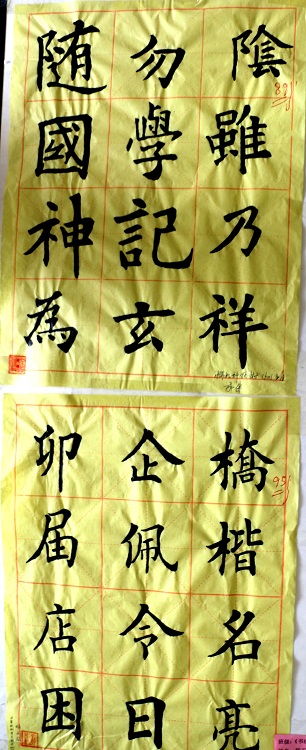 陰雖乃祥
勿學記玄
随國神為
88
橋楷名亮
企佩令日
卯届店困
95